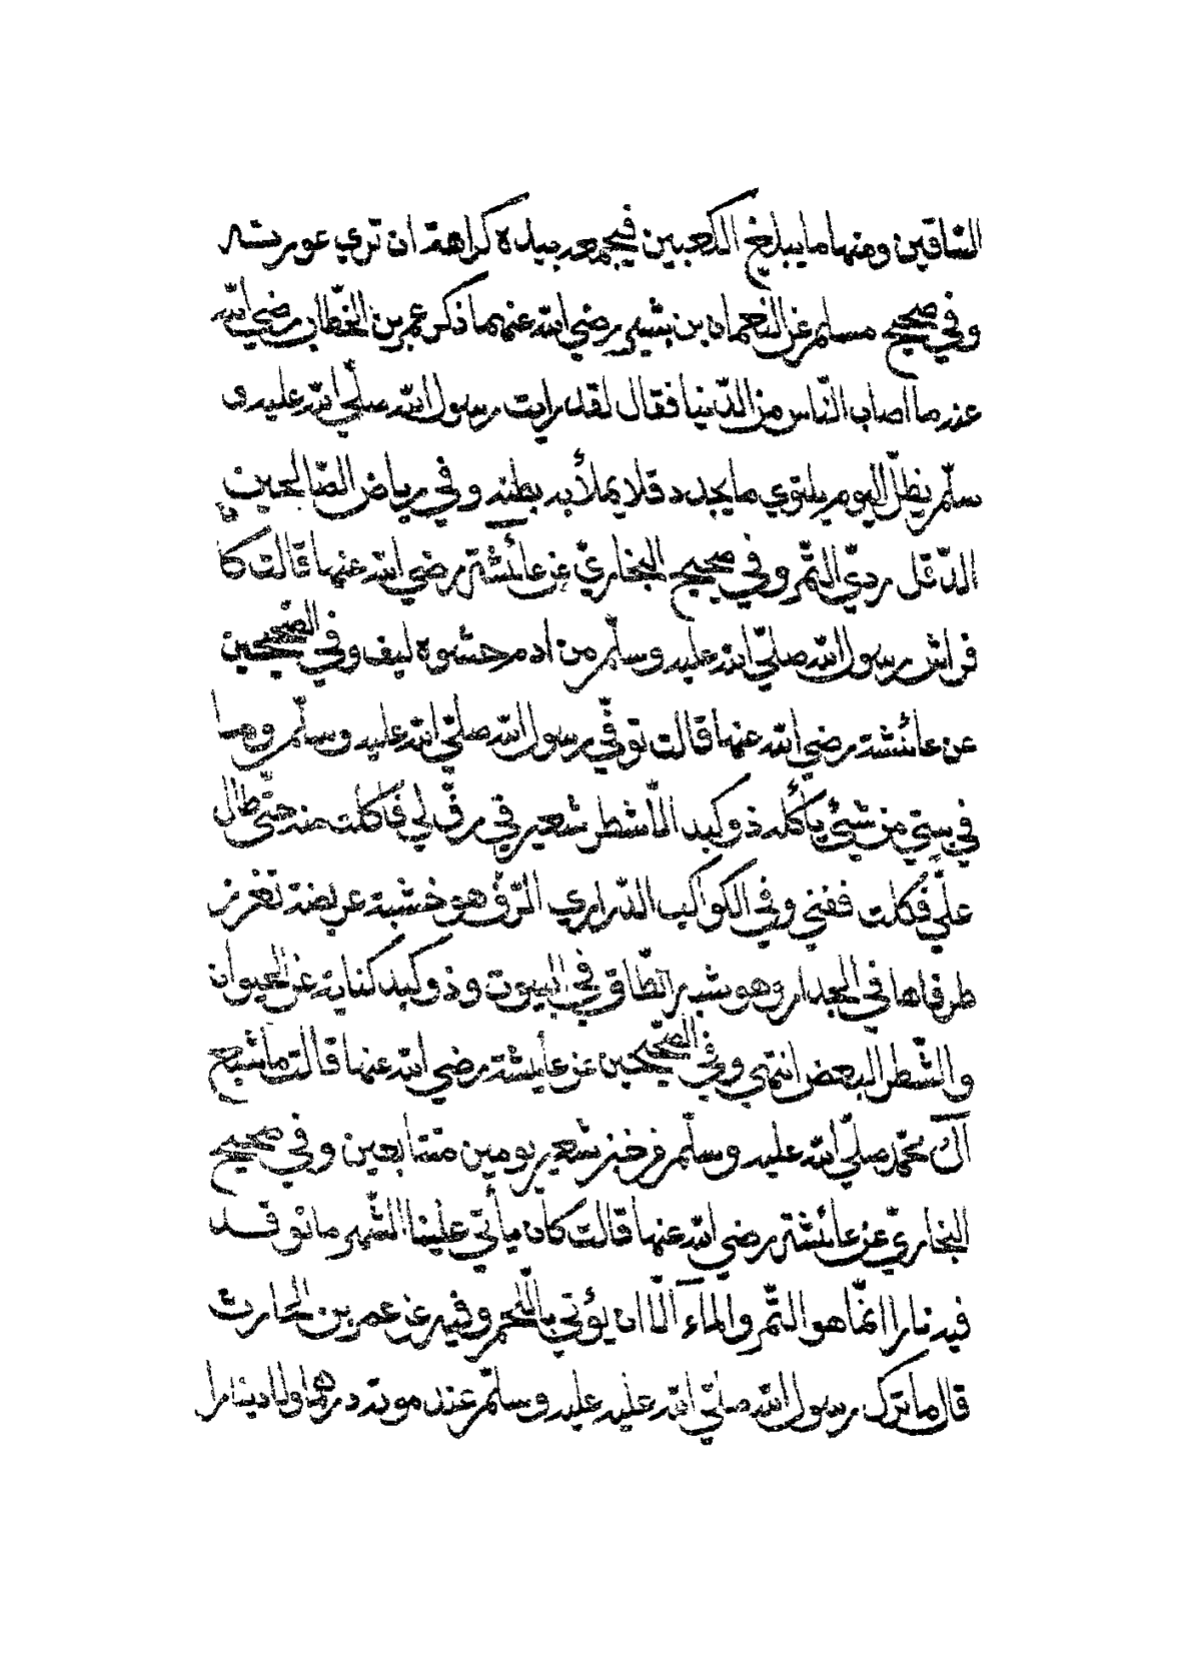 الساقين ومنها ما يبلغ الكعبين فيجمعه بيده كراهة ان تري عورته
وفي صحيح مسلم عن النعمان بن بشير رضي الله عنهما ذكر عمر بن الخطاب رضي الله
عنه ما اصاب الناس من الدنيا فقال لقد رايت رسول الله صلي الله عليه و
سلّم يظلّ اليوم يلتوي ما يجد دقلا يملأ به بطنه وفي رياض الصّالحين
الدّقل رديّ التّمر وفي صحيح البخاريّ عن عائشة رضي الله عنها قالت كا
فراش رسول الله صلّي الله عليه وسلّم من ادم حشوه ليف وفي الصّحيحين
عن عائشة رضي الله عنها قالت توفّي رسول الله صلّي الله عليه وسلّم وما
في بيتي من شيئ يأكله ذو كبد الّا شطر شعير في رفّ لي فاكلت منه حتّى طال
عليّ فكلت ففني وفي الكواكب الدّراري الرّفّ هو خشبة عريضة تغرز
طرفاها في الجدار وهو شبه الطّاق في البيوت وذو كبد كناية عن الحيوان
والشّطر البعض انتهي وفي الصّحيحين عن عايشة رضي الله عنها قالت ما شبع
آل محمّد صلّي الله عليه وسلّم من خبز شعير يومين متتابعين وفي صحيح
البخاريّ عن عائشة رضي الله عنها قالت كان يأتي علينا الشّهر ما نوقد
فيه نارا انّما هو التّمر والماء الّا ان يؤتي باللّحم وفيه عن عمر بن الحارث
قال ما ترك رسول الله صلّي الله عليه عليه وسلّم عند موته درهما ولا دينارا